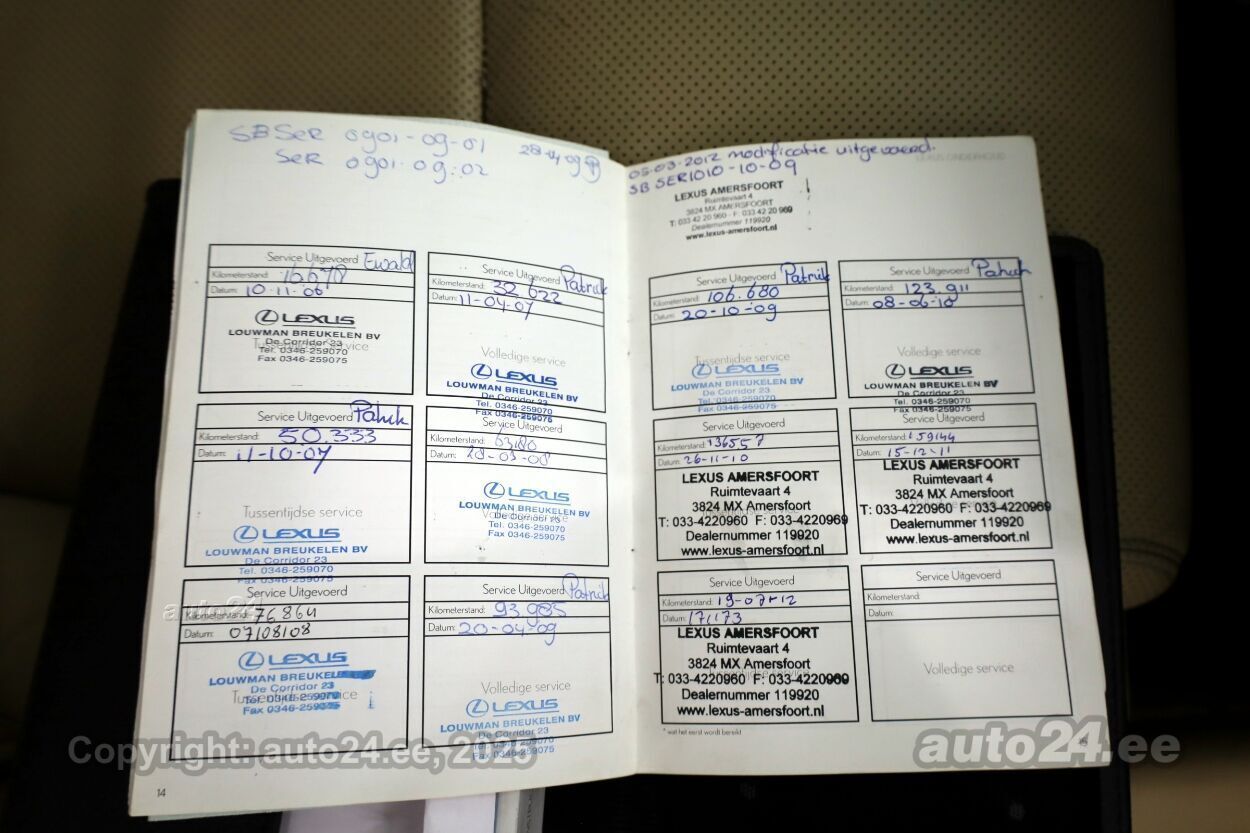 SB SER 0901-09-01
SER 0901-09-02
28-04-09
Service Uitgevoerd Ewald
Kilometerstand: 16.678
Datum: 10-11-06
LEXUS
LOUWMAN BREUKELEN BV
De Corridor 23
Tussentijdse service
Tel. 0346-259070
Fax 0346-259075
Service Uitgevoerd Patrick
Kilometerstand: 32 622
Datum: 11-04-07
Volledige service
LEXUS
LOUWMAN BREUKELEN BV
De Corridor 23
Tel. 0346-259070
Fax 0346-259075
Service Uitgevoerd Patrick
Kilometerstand: 50.333
Datum: 11-10-07
Tussentijdse service
LEXUS
LOUWMAN BREUKELEN BV
De Corridor 23
Tel. 0346-259070
Fax 0346-259075
Service Uitgevoerd
Kilometerstand:
Datum: 28-03-08
LEXUS
LOUWMAN BREUKELEN BV
De Corridor 23
Volledige service
Tel. 0346-259070
Fax 0346-259075
Service Uitgevoerd
Kilometerstand: 76864
Datum: 07/08/08
LEXUS
LOUWMAN BREUKELEN
De Corridor 23
Tussentijdse service
Tel. 0346-259070
Fax 0346-259075
Service Uitgevoerd Patrick
Kilometerstand: 93.985
Datum: 20-04-09
Volledige service
LEXUS
LOUWMAN BREUKELEN BV
De Corridor 23
Tel. 0346-259070
Fax 0346-259075
14
LEXUS ONDERHOUD
05-03-2012 modificatie uitgevoerd.
SB SER1010-10-09
LEXUS AMERSFOORT
Ruimtevaart 4
3824 MX AMERSFOORT
T: 033 42 20 960 - F: 033 42 20 969
Dealernummer 119920
www.lexus-amersfoort.nl
Service Uitgevoerd Patrick
Kilometerstand: 106.680
Datum: 20-10-09
Tussentijdse service
LEXUS
LOUWMAN BREUKELEN BV
De Corridor 23
Tel. 0346-259070
Fax 0346-259075
Service Uitgevoerd Patrick
Kilometerstand: 123.911
Datum: 08-06-10
Volledige service
LEXUS
LOUWMAN BREUKELEN BV
De Corridor 23
Tel. 0346-259070
Fax 0346-259075
Service Uitgevoerd
Kilometerstand: 136557
Datum: 26-11-10
LEXUS AMERSFOORT
Ruimtevaart 4
3824 MX Amersfoort
T: 033-4220960 F: 033-4220969
Dealernummer 119920
www.lexus-amersfoort.nl
Service Uitgevoerd
Kilometerstand: 159144
Datum: 15-12-11
LEXUS AMERSFOORT
Ruimtevaart 4
3824 MX Amersfoort
T: 033-4220960 F: 033-4220969
Dealernummer 119920
www.lexus-amersfoort.nl
Service Uitgevoerd
Kilometerstand: 19-07-12
Datum: 171173
LEXUS AMERSFOORT
Ruimtevaart 4
3824 MX Amersfoort
T: 033-4220960 F: 033-4220969
Dealernummer 119920
www.lexus-amersfoort.nl
Service Uitgevoerd
Kilometerstand:
Datum:
Volledige service
* wat het eerst wordt bereikt
auto24
Copyright: auto24.ee, 2023
auto24.ee